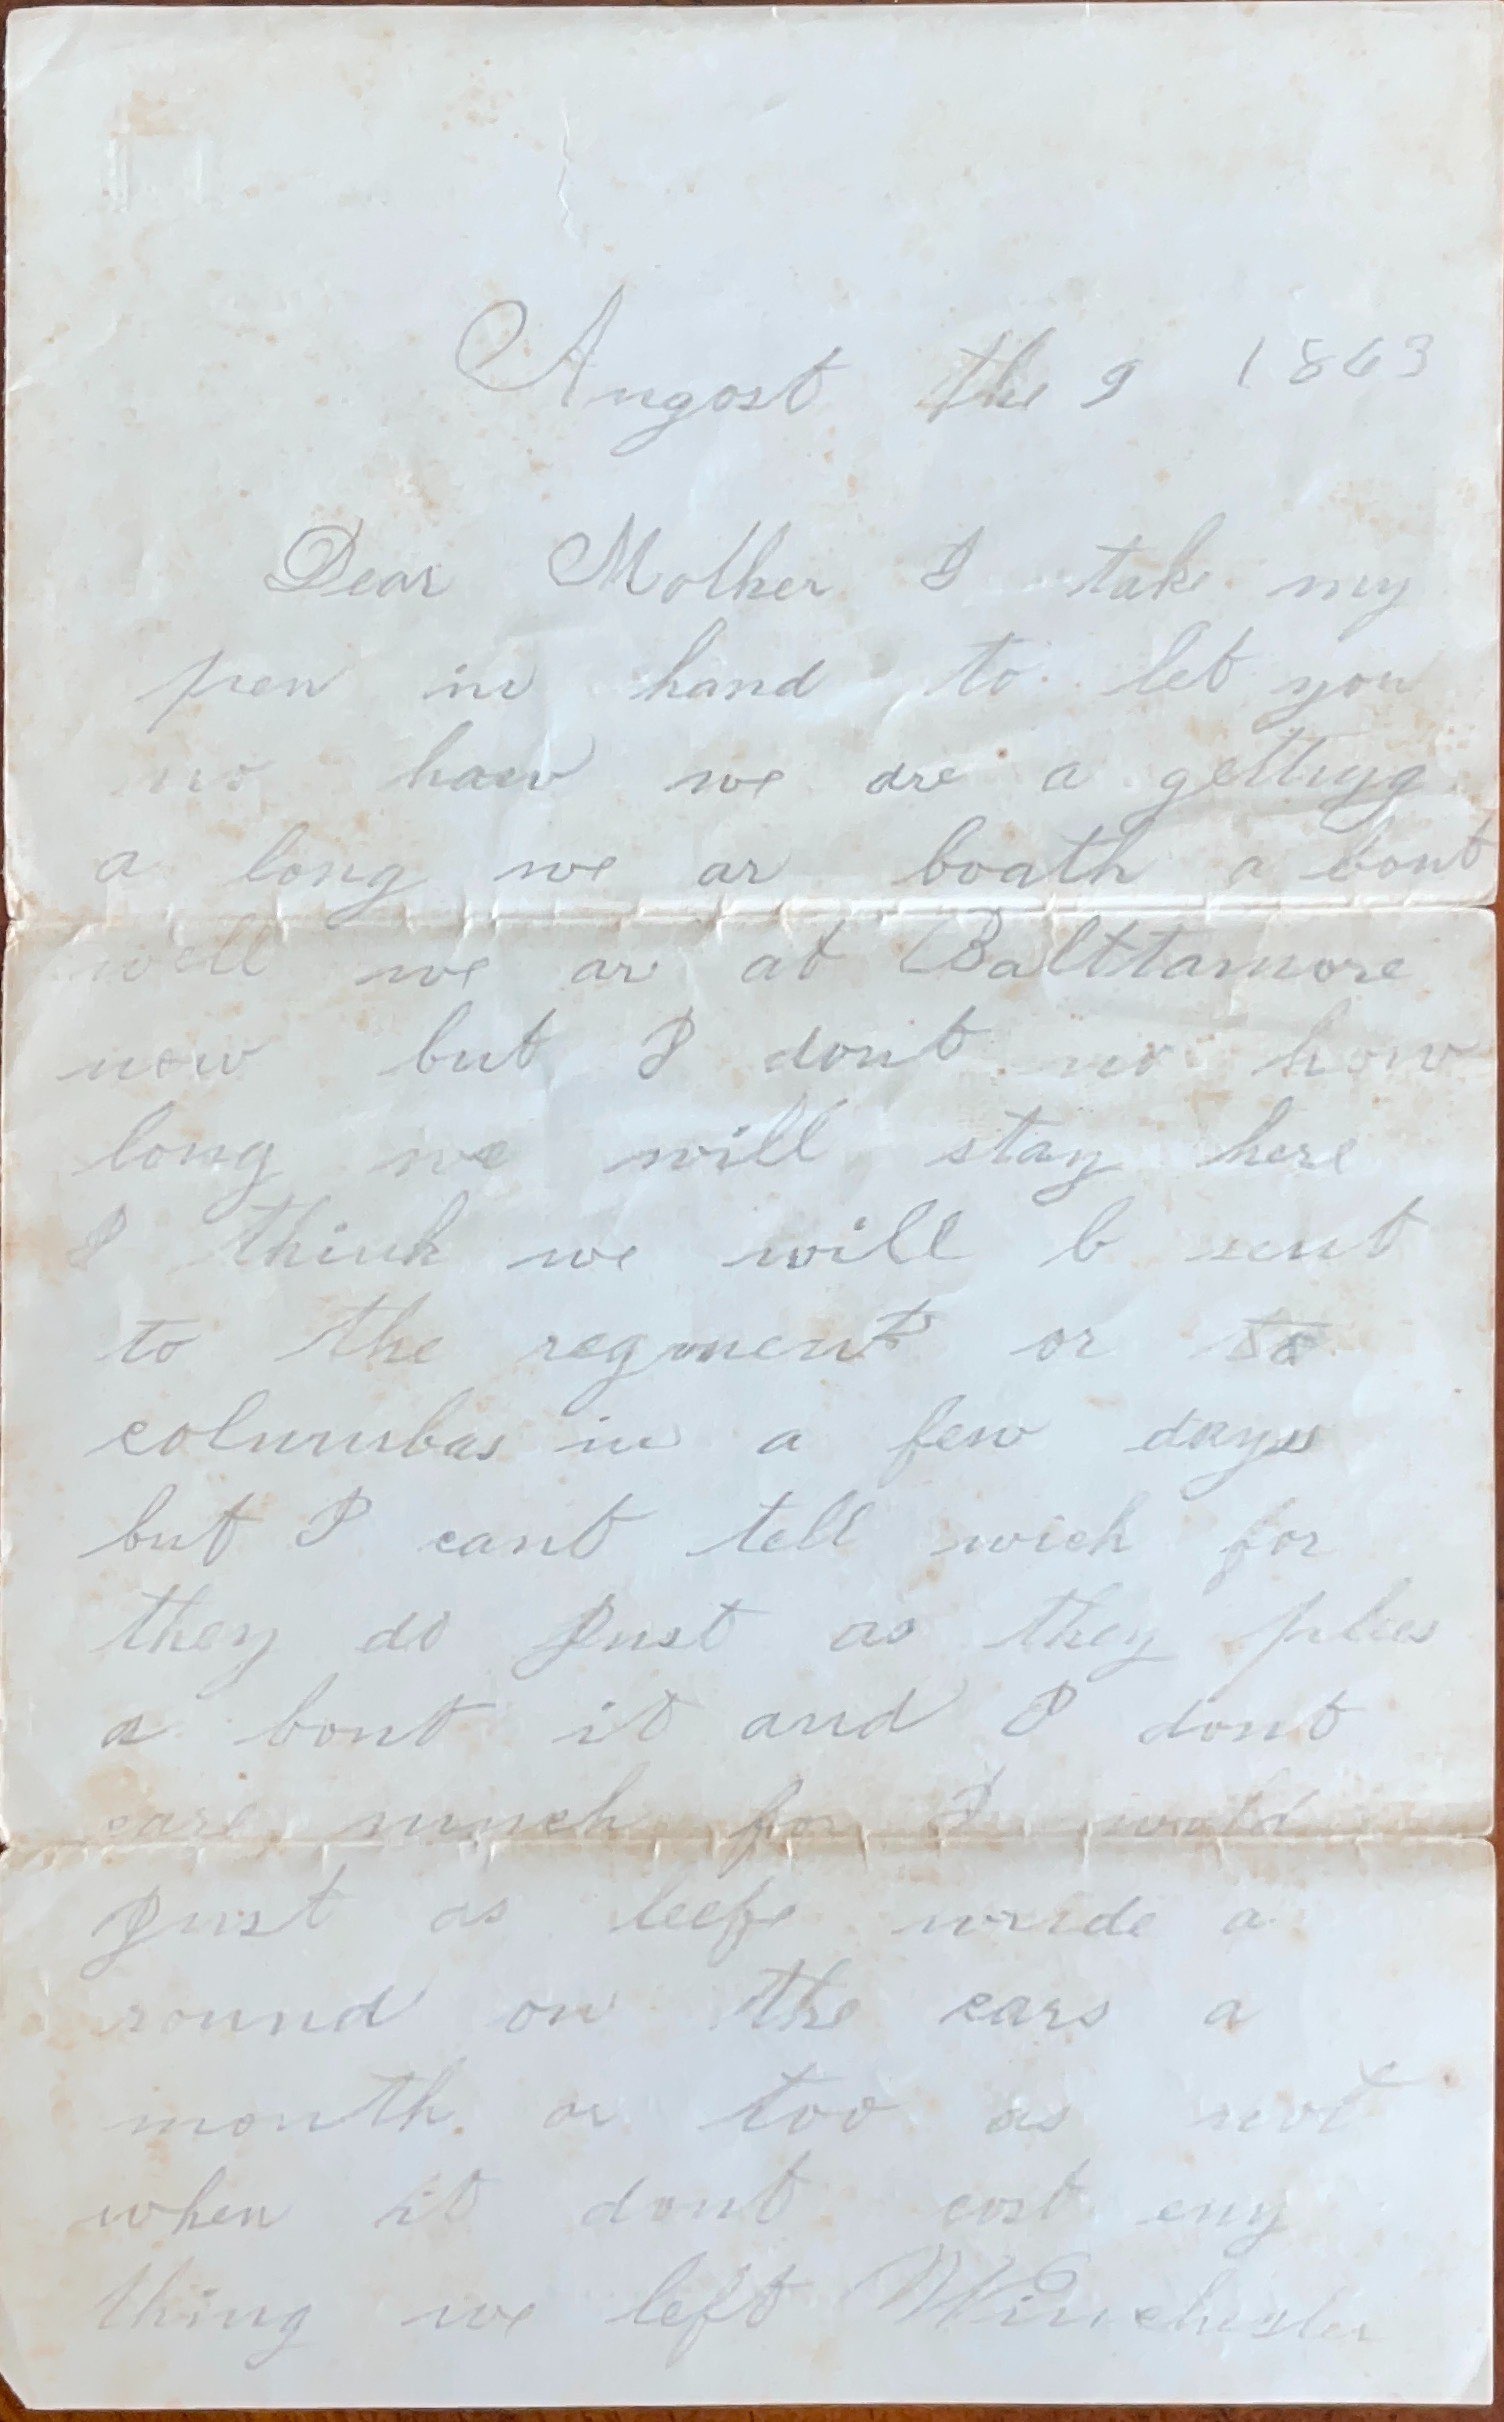 Augost the 9 1863
Dear Mother I take my
pen in hand to let you
no how we are a gettingg
a long we ar boath a bout
well we ar at Balttamore
now but I dont no how
long we will stay here
I think we will b sent
to the regment or to
columbas in a few days
but I cant tell wich for
they do Just as they plees
a bout it and I dont
care much for I wold
Just as leefe wride a
round on the cars a
month or too as not
when it dont cost eny
thing we left Winchester